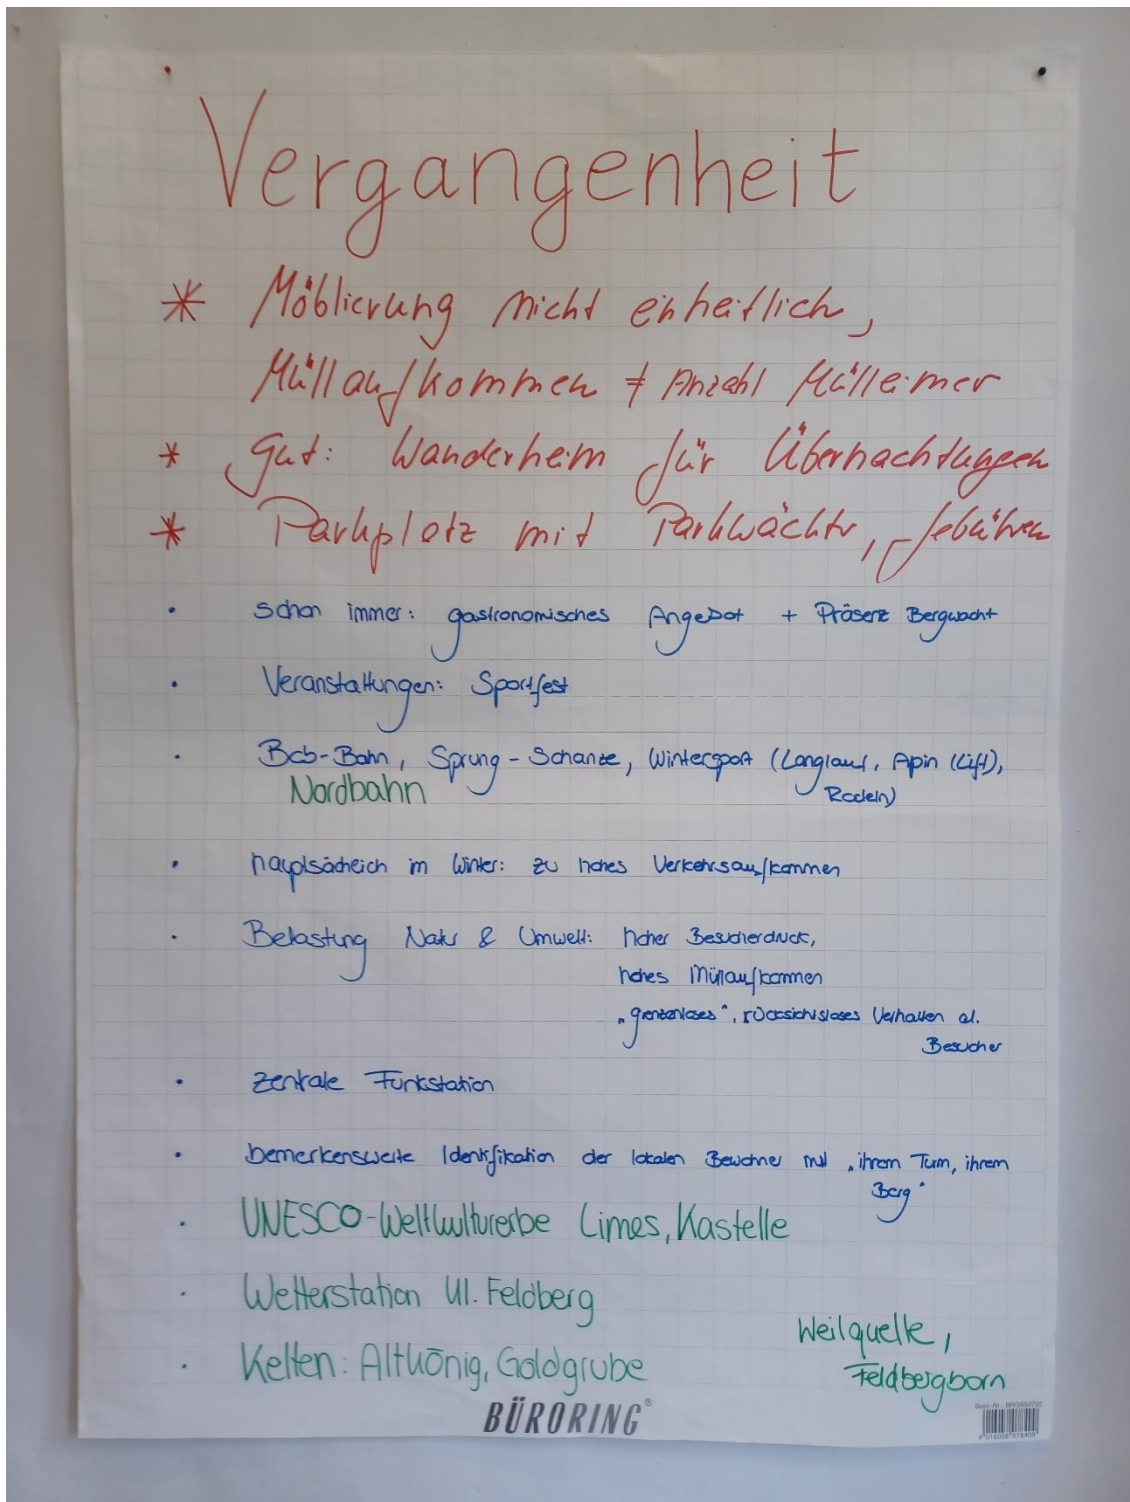 Vergangenheit
* Möblierung nicht einheitlich,
Müllaufkommen ≠ Anzahl Mülleimer
* Gut: Wanderheim für Übernachtungen
* Parkplatz mit Parkwächtr, Gebühren
• schon immer: gastronomisches Angebot + Präsenz Bergwacht
• Veranstaltungen: Sportfest
• Bob-Bahn, Sprung-Schanze, Wintersport (Langlauf, Apin (Lift),
Nordbahn Rodeln)
• hauptsächlich im Winter: zu hohes Verkehrsaufkommen
• Belastung Natur & Umwelt: hoher Besucherdruck,
hohes Müllaufkommen
"grenzenloses", rücksichtsloses Verhalten d.
Besucher
• zentrale Funkstation
• bemerkenswerte Identifikation der lokalen Bewohner mit "ihrem Turm, ihrem
Berg"
• UNESCO-Weltkulturerbe Limes, Kastelle
• Wetterstation Kl. Feldberg
Weilquelle,
• Kelten: Altkönig, Goldgrube Feldbergborn
BÜRORING®
Best.-Nr.: BRG650702